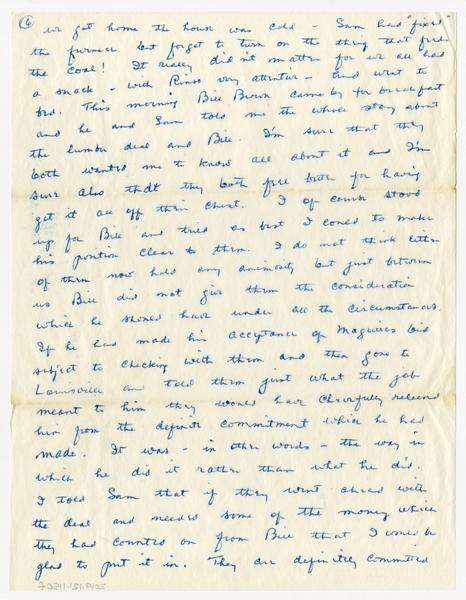 6
we got home the house was cold - Sam had "fixed"
the furnace but forgot to turn on the thing that feeds
the coal! It really didn't matter for we all had
a snack - with Rinos very attentive - and went to
bed. This morning Bill Brown came by for breakfast
and he and Sam told me the whole story about
the lumber deal and Bill. I'm sure that they
both wanted me to know all about it and I'm
sure also that they both feel better for having
got it all off their chest. I of course stood
up for Bill and tried as best I could to make
his position clear to them. I do not think either
of them now hold any animosity but just between
us Bill did not give them the consideration
which he should have under all the circumstances.
If he had made his acceptance of Maguires bid
subject to checking with them and then gone to
Louisville and told them just what the job
meant to him they would have cheerfully released
him from the definite commitment which he had
made. It was - in other words - the way in
which he did it rather than what he did.
I told Sam that if they went ahead with
the deal and needed some of the money which
they had counted on from Bill that I would be
glad to put it in. They are definitely committed